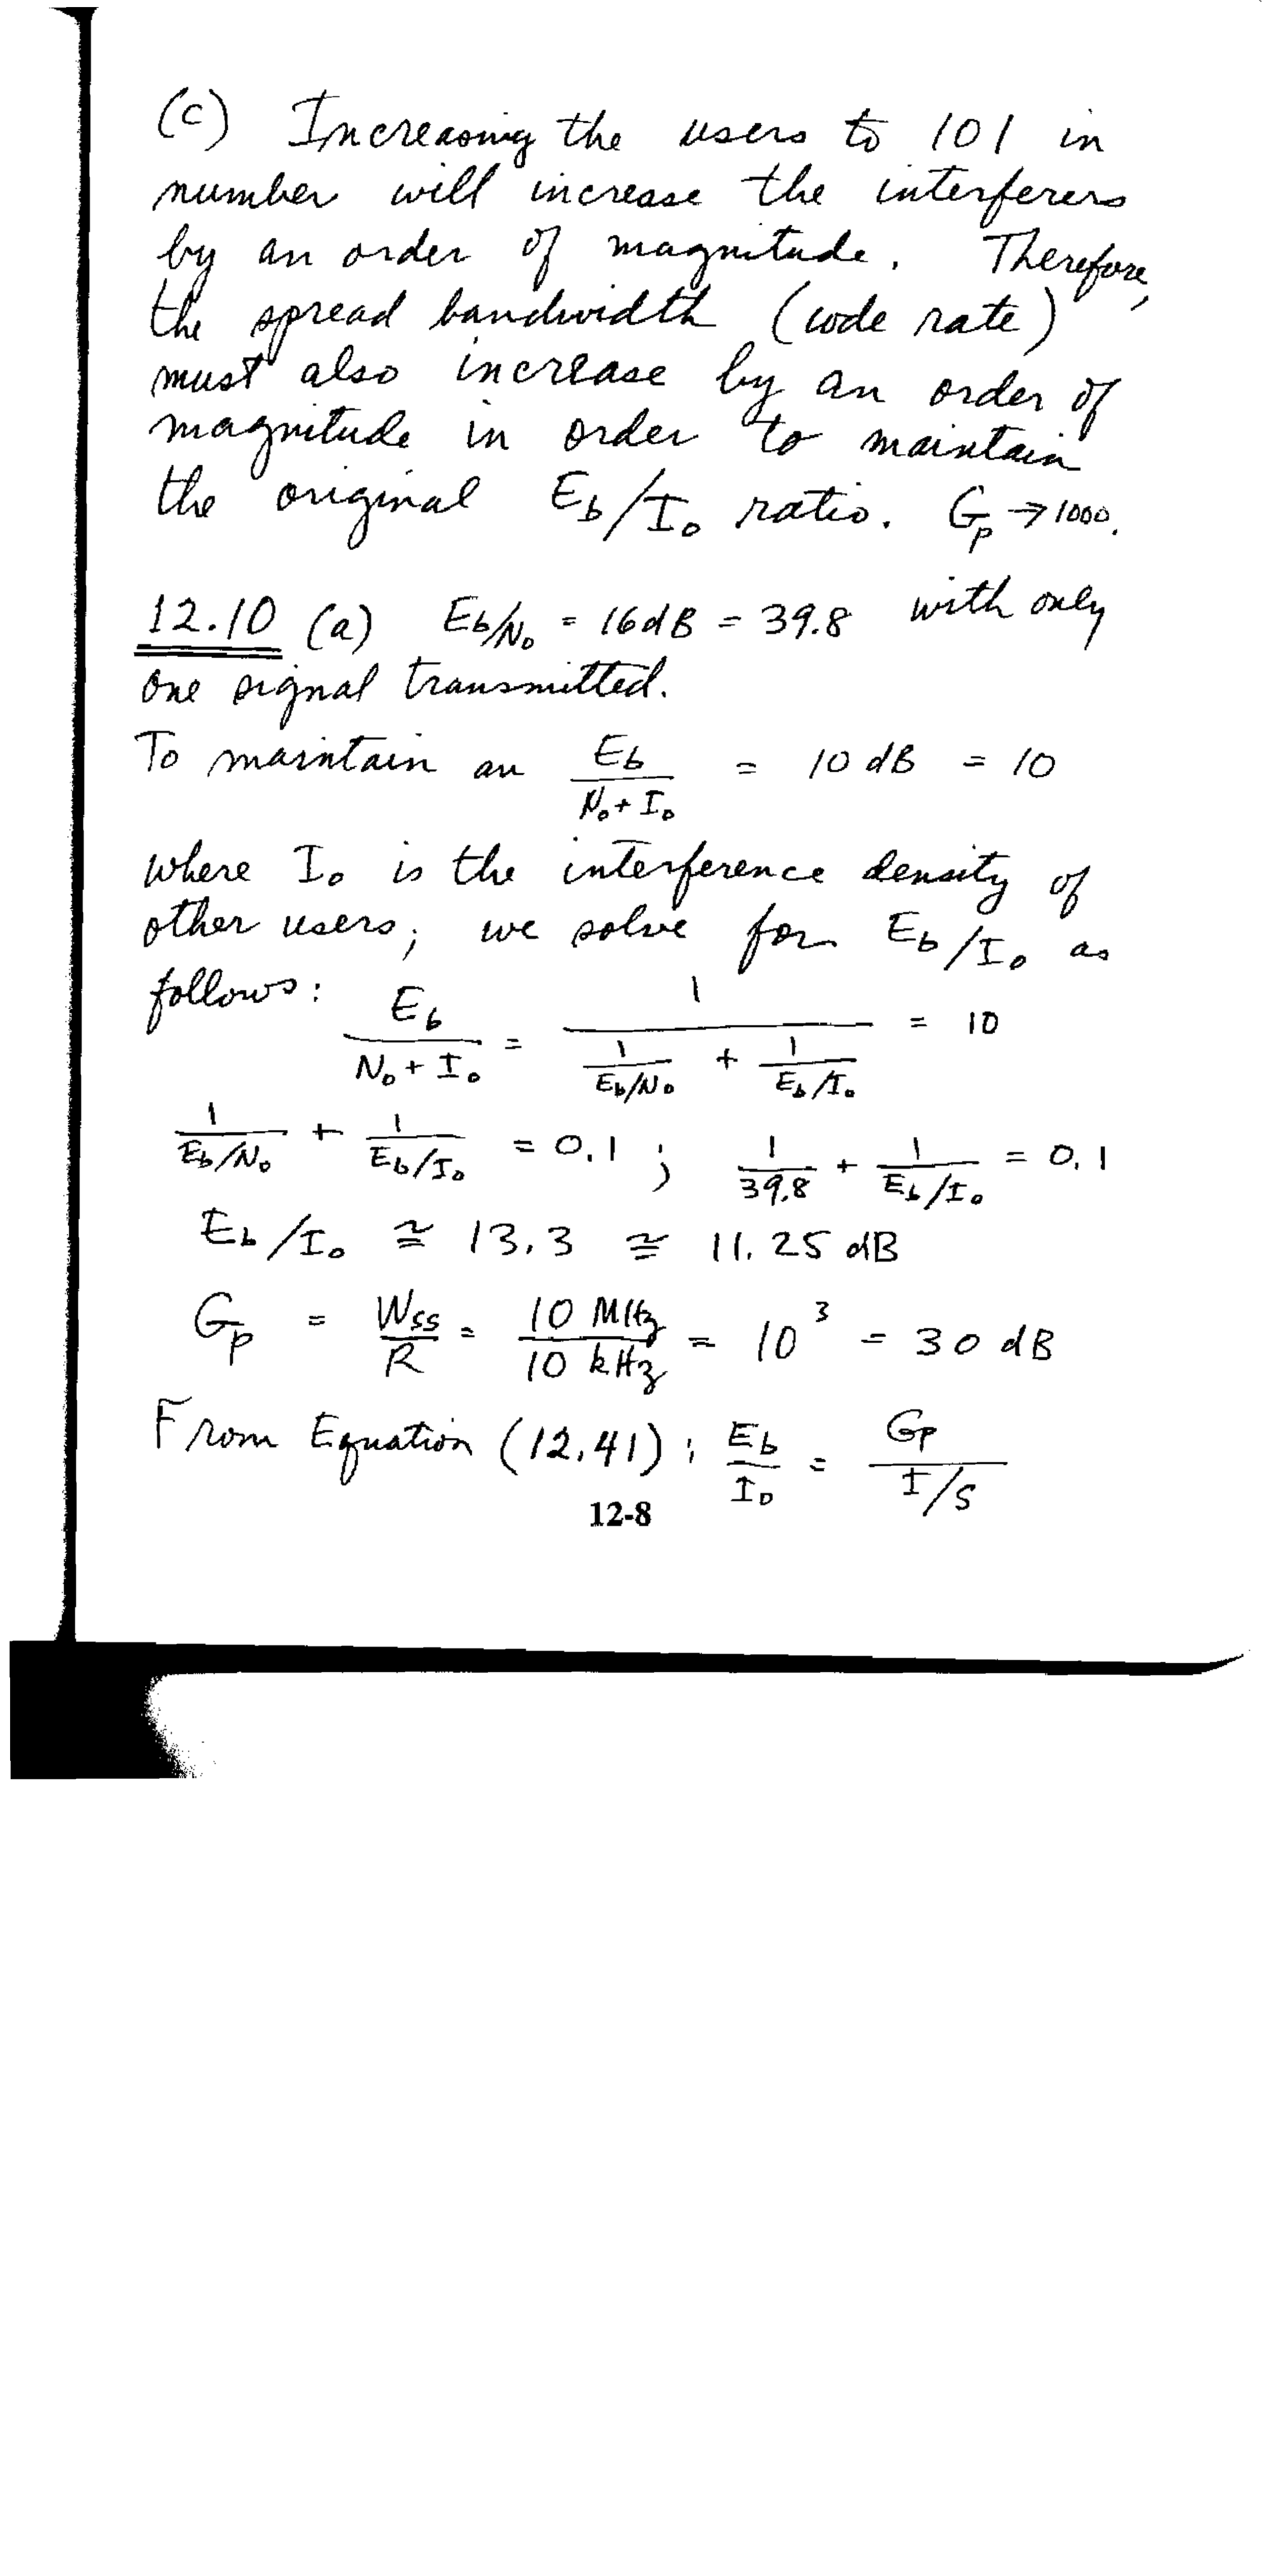 (c) Increasing the users to 101 in
number will increase the interferers
by an order of magnitude. Therefore,
the spread bandwidth (code rate)
must also increase by an order of
magnitude in order to maintain
the original Eb/I₀ ratio. Gp → 1000.
12.10 (a) Eb/N₀ = 16 dB = 39.8 with only
one signal transmitted.
To maintain an Eb/(N₀ + I₀) = 10 dB = 10
where I₀ is the interference density of
other users; we solve for Eb/I₀ as
follows: Eb/(N₀ + I₀) = 1/(1/(Eb/N₀) + 1/(Eb/I₀)) = 10
1/(Eb/N₀) + 1/(Eb/I₀) = 0.1 ; 1/39.8 + 1/(Eb/I₀) = 0.1
Eb/I₀ ≅ 13.3 ≅ 11.25 dB
Gp = Wss/R = 10 MHz/10 kHz = 10³ = 30 dB
From Equation (12.41) ; Eb/I₀ = Gp/(I/S)
12-8